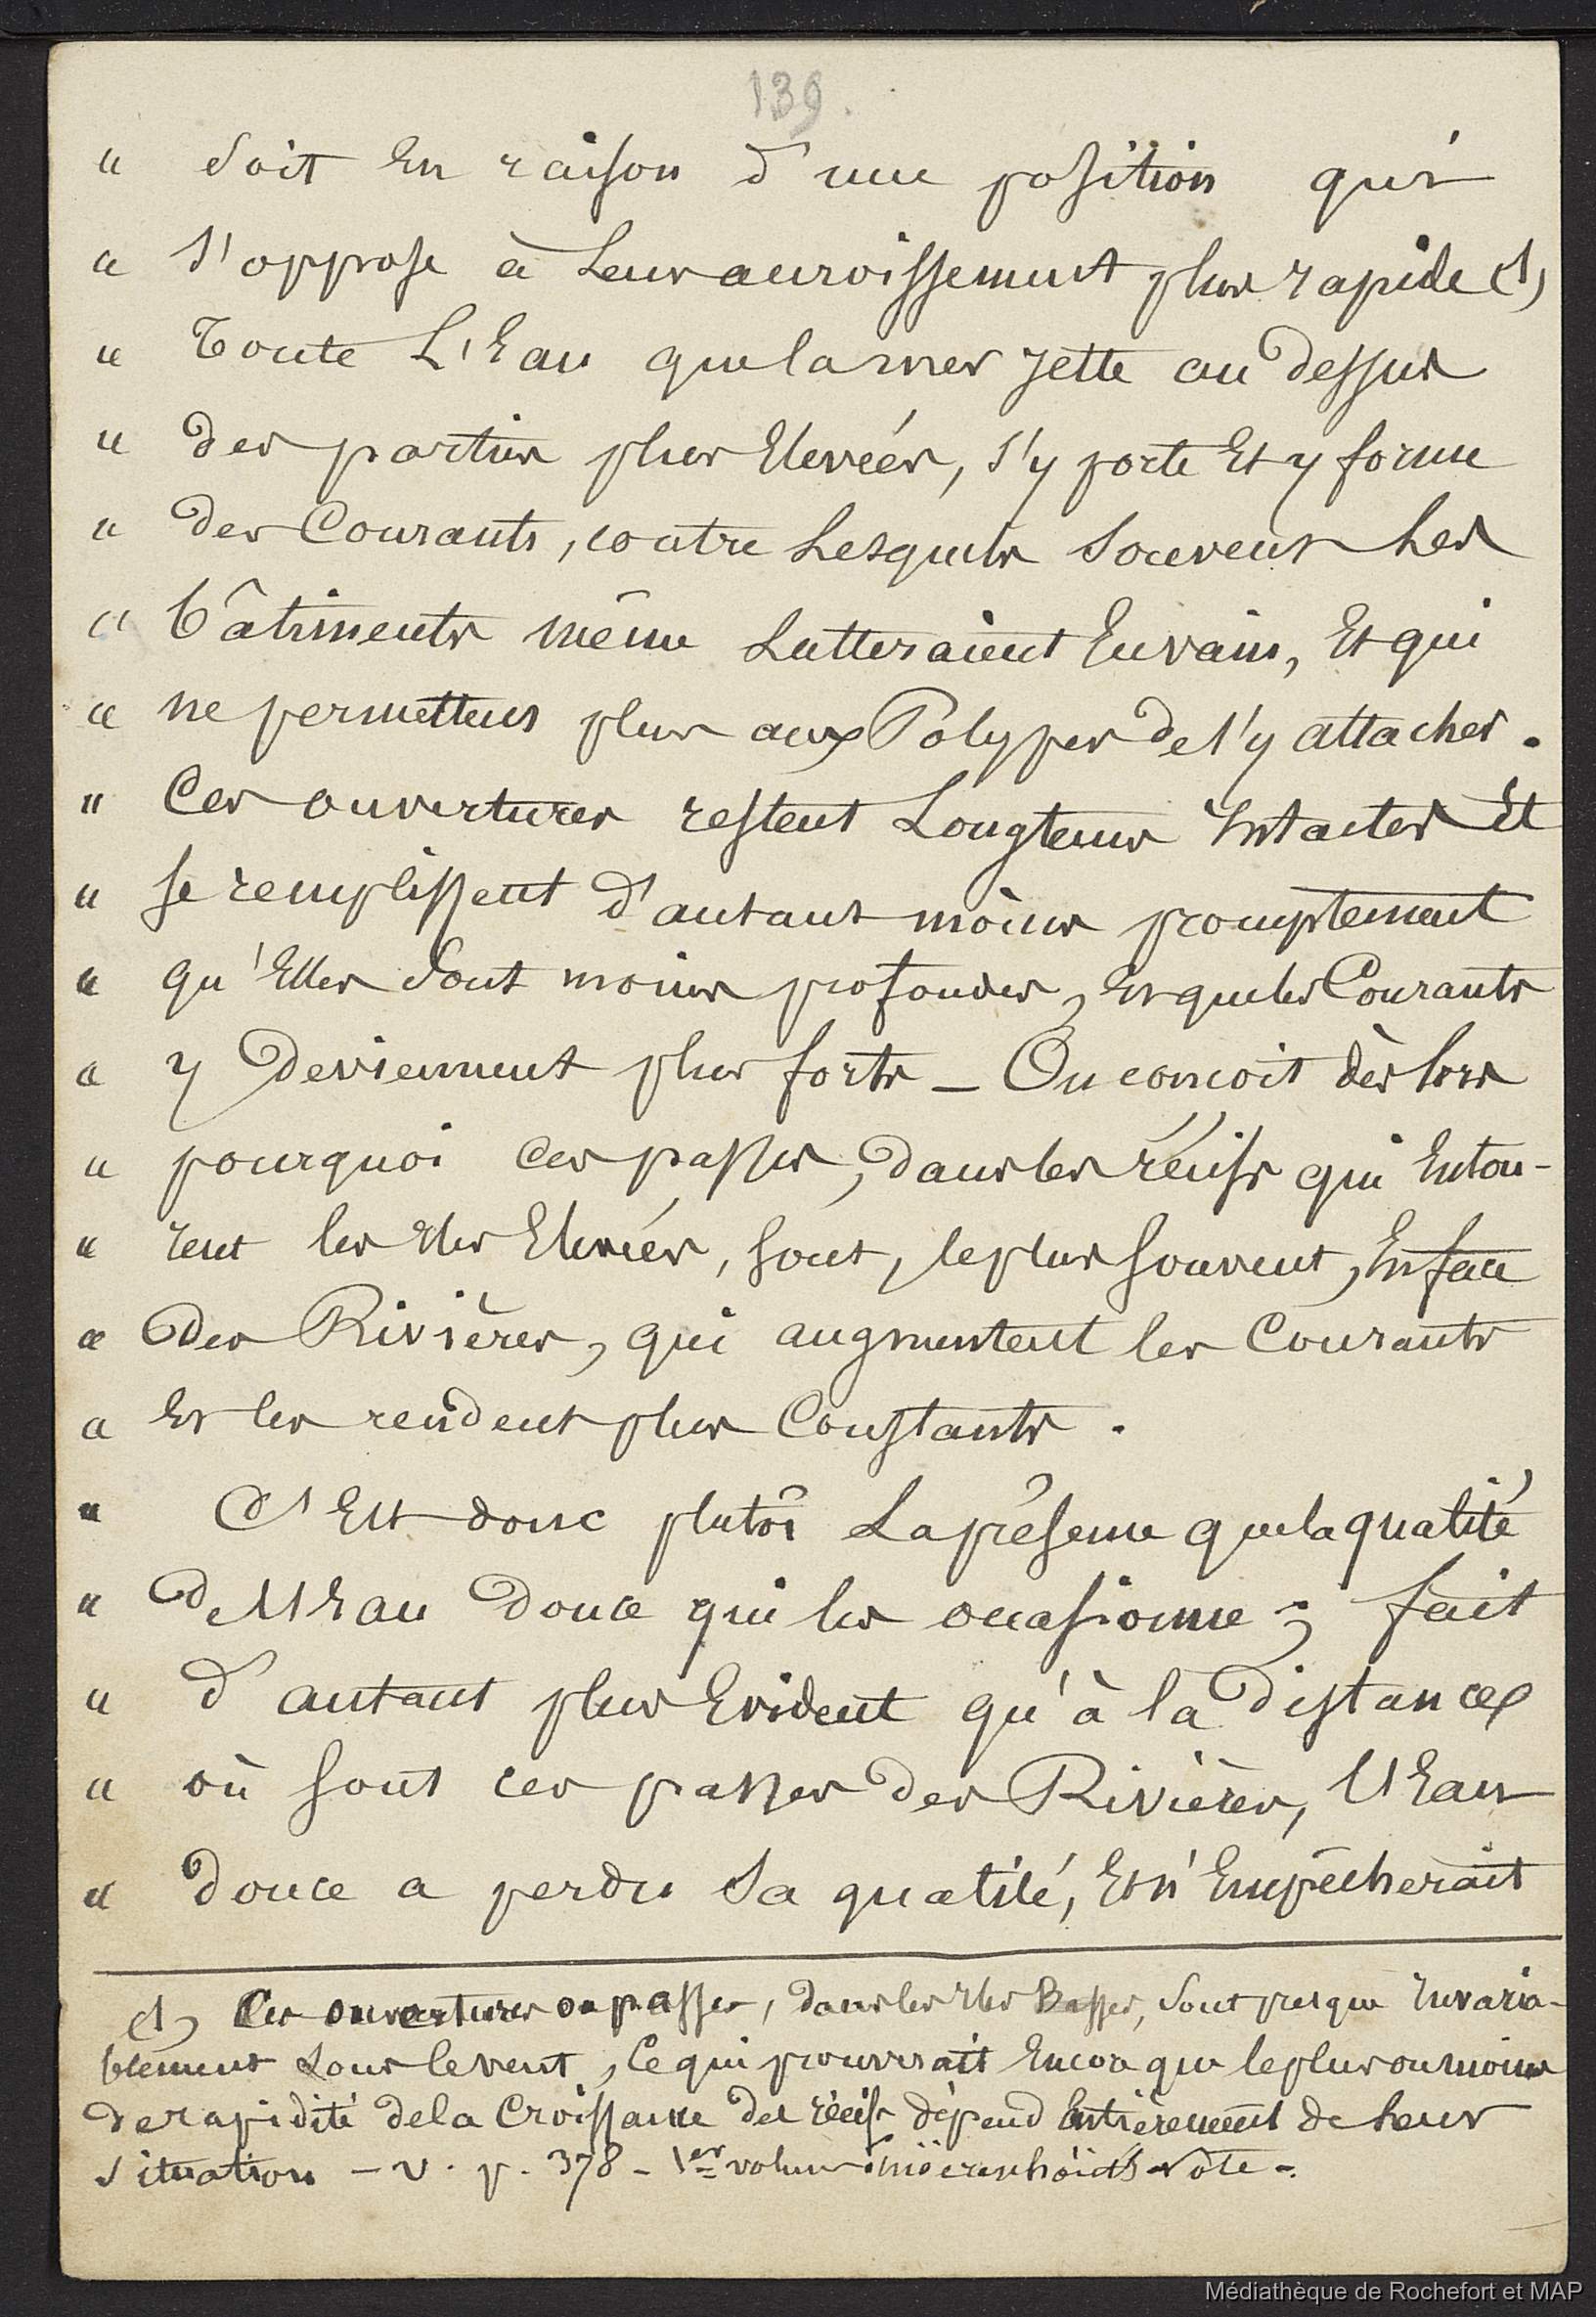 139.
" Soit En raison d'une position qui
" s'oppose à Leur accroissement plus rapide (1)
" Toute L'Eau que la mer jette au dessus
" des parties plus Elevées, s'y porte Et y forme
" des Courants, contre Lesquels Souvent Les
" bâtiments même Lutteraient Envain, Et qui
" ne permettent plus aux Polypes de s'y attacher.
" Ces ouvertures restent Longtems Intactes Et
" se remplissent d'autant moins promptement
" qu'Elles Sont moins profondes, Et que les Courants
" y Deviennent plus forts - On concoit dès lors
" pourquoi ces passes, dans les récifs qui Entou-
" rent les Iles Elevées, sont, le plus souvent, En face
" des Rivières, qui augmentent les Courants
" Et les rendent plus Constants.
" C'Est donc plutôt La présence que la qualité
" de l'Eau Douce qui les occasionne ; fait
" d'autant plus Evident qu'à la distance
" où sont ces passes des Rivières, l'Eau
" douce a perdu Sa qualité, Et n'Empêcherait
(1) Ces ouvertures ou passes, dans les Iles Basses, Sont presque Invaria-
blement Sous le vent, Ce qui prouverait Encore que le plus ou moins
de rapidité de la Croissance des récifs dépend Entièrement de Leur
Situation - v. p. 378 - 1er volume Möerenhöut's Note -.
Médiathèque de Rochefort et MAP